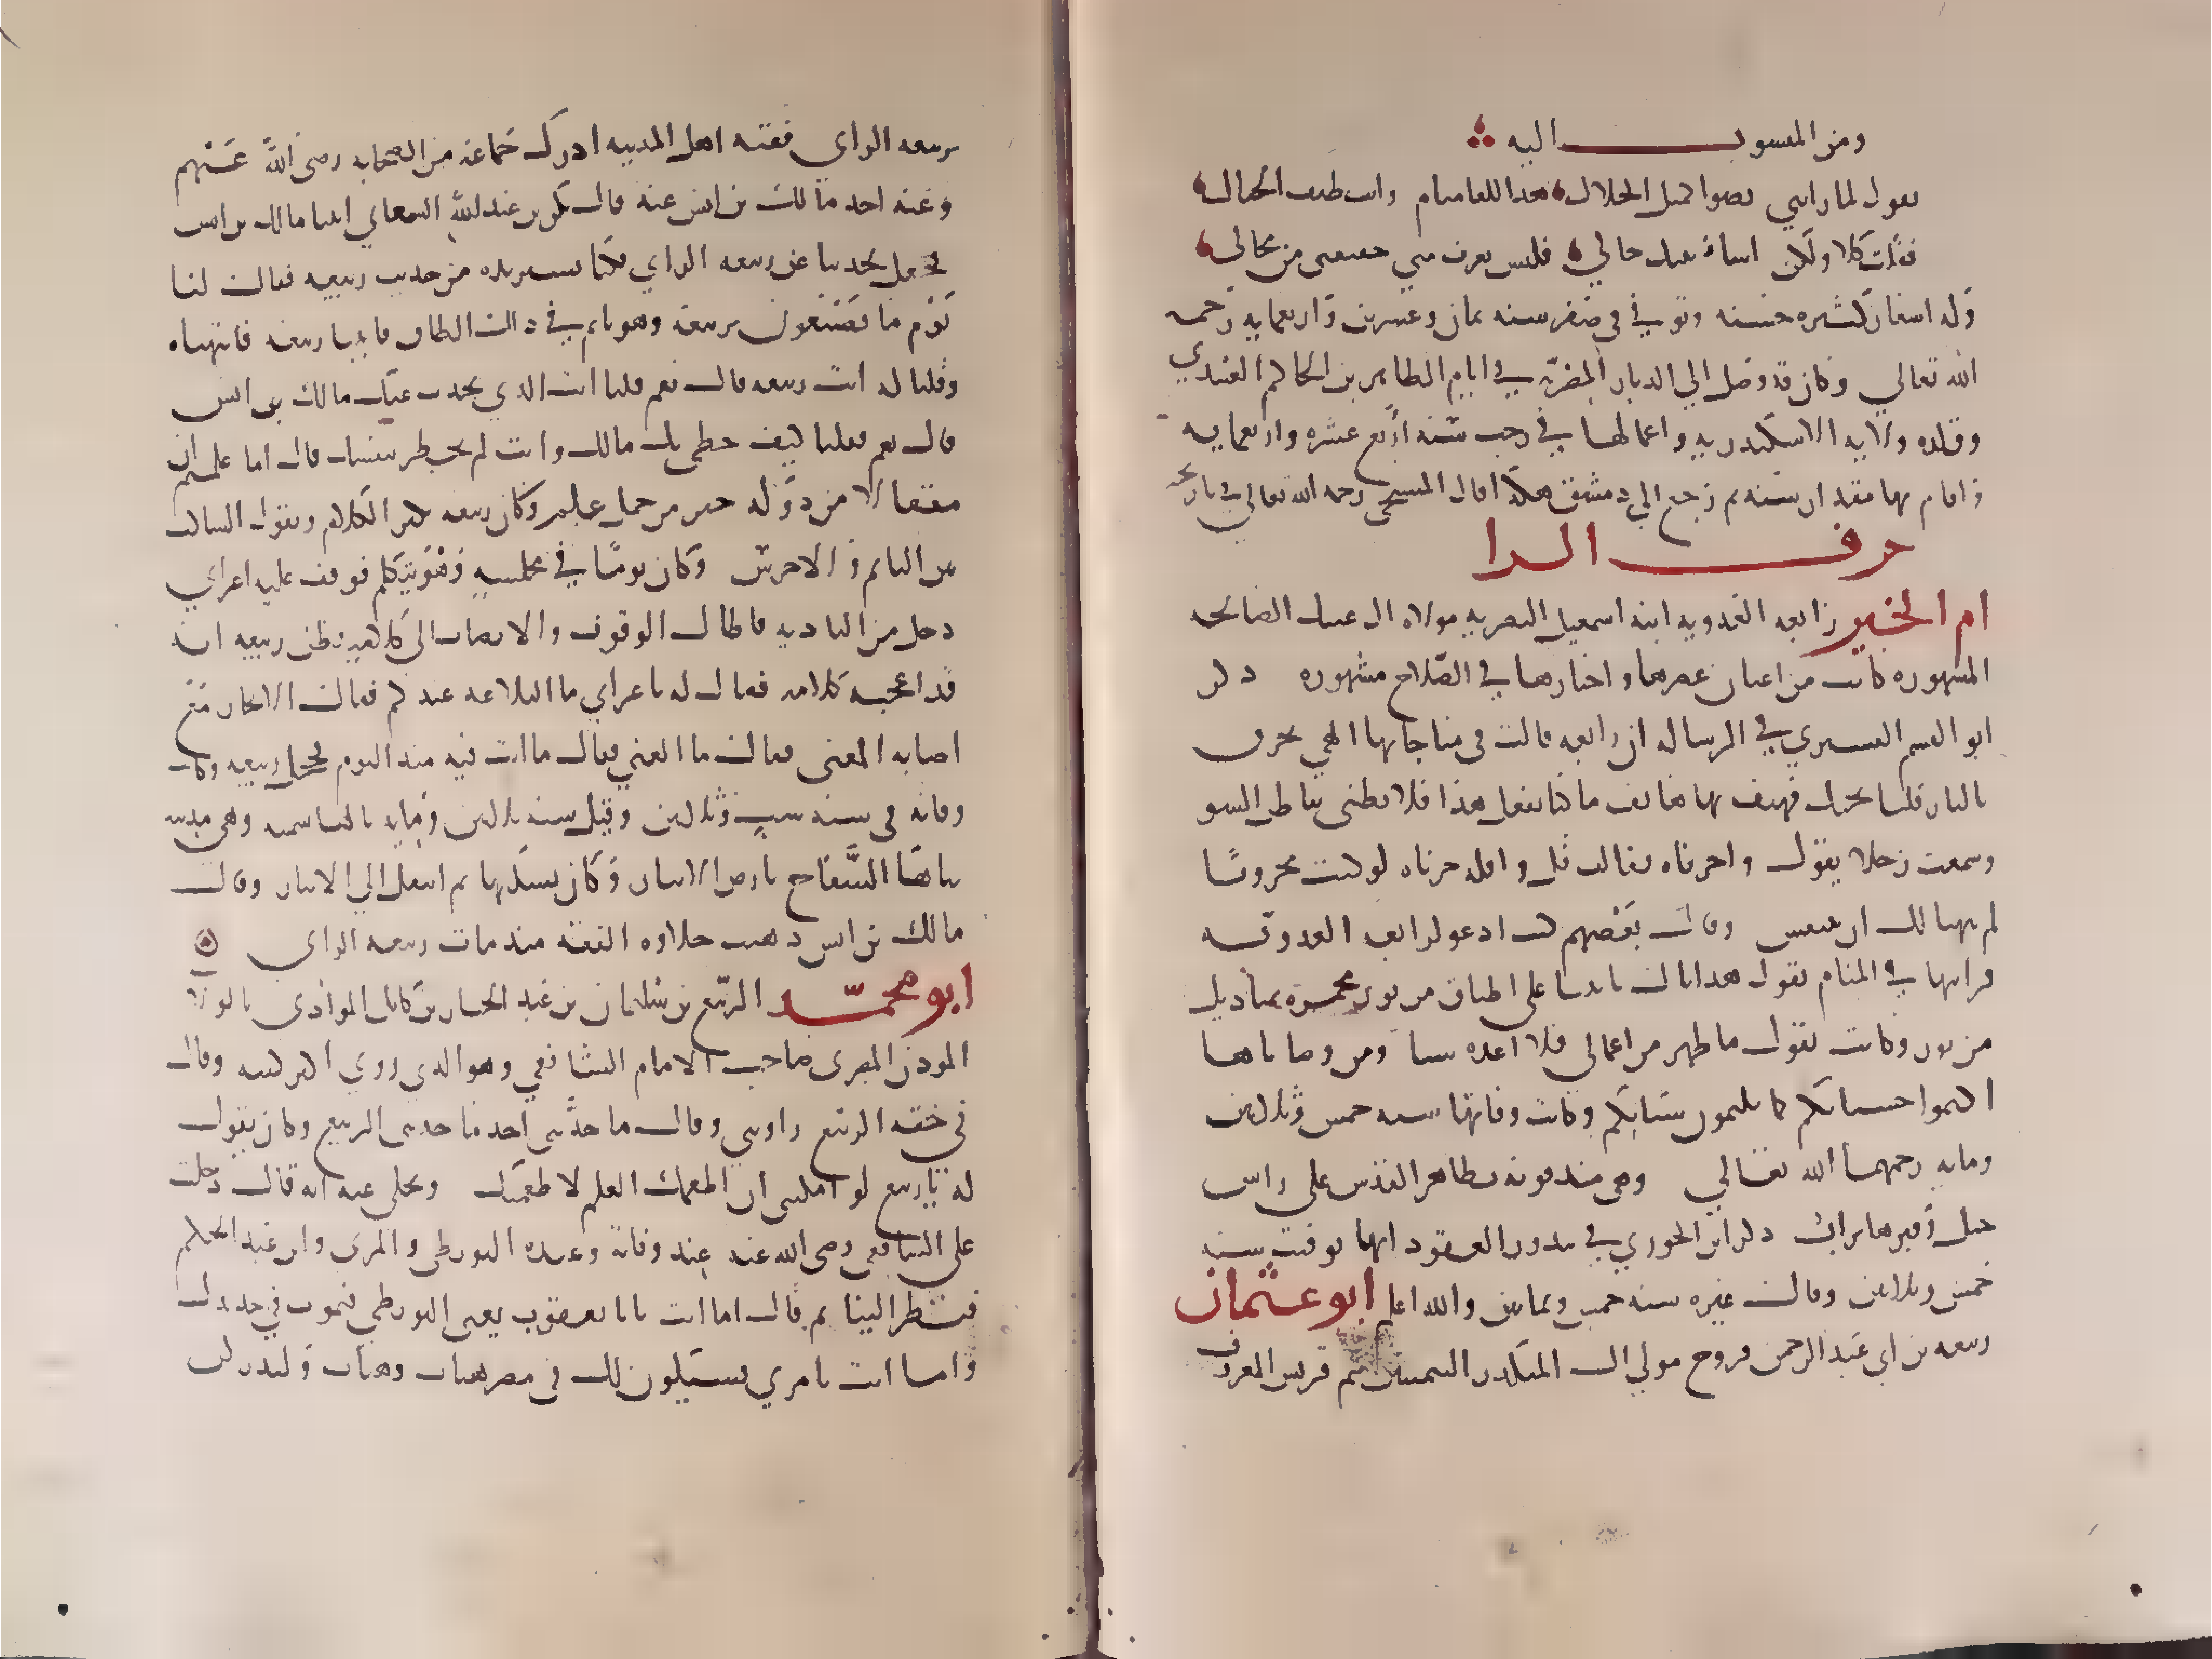 ومن المنسوب اليه
يقول لما راني نضوا كمثل الخلال هذا اللقا منام وانت طيف الخيال
فقلت كلا ولكن اساء بينك حالي فليس يعرف مني حقيقتي من محالي
وله اشعار كثيره حسنه وتوفي في صفر سنه ثمان وعشرين واربعمايه رحمه
الله تعالي وكان قد وصل الي الديار المصريه في ايام الظاهر بن الحاكم العبيدي
وقلده ولايه الاسكندريه واعمالها في رجب سنه اربع عشره واربعمايه
واقام بها مقدار سنه ثم رجع الي دمشق هكذا قال المسبحي رحمه الله تعالي في تاريخه
حرف الرا
ام الخير رابعه العدويه ابنه اسمعيل البصريه مولاه ال عتيك الصالحه
المشهوره كانت من اعيان عصرها واخبارها في الصلاح مشهوره ذكر
ابو القسم القشيري في الرساله ان رابعه قالت في مناجاتها الهي تحرق
بالنار قلبا يحبك فهتف بها هاتف ما كنا نفعل هذا فلا تظني بنا ظن السو
وسمعت رجلا يقول واحزناه فقالت قل واقله حزناه لو كنت محزونا
لم يتهيا لك ان تتنفس وقال بعضهم كنت ادعو لرابعه العدويه
فرايتها في المنام تقول هداياك تاتينا علي اطباق من نور مخمره بمناديل
من نور وكانت تقول ما ظهر من اعمالي فلا اعده شيا ومن وصاياها
اكتموا حسناتكم كما تكتمون سيئاتكم وكانت وفاتها سنه خمس وثلاثين
ومايه رحمها الله تعالي وهي مدفونه بظاهر القدس علي راس
جبل وقبرها يزار ذكر ابن الجوزي في شذور العقود انها توفيت سنه
خمس وثلاثين وقال غيره سنه خمس وثمانين والله اعلم ابو عثمان
ربيعه بن ابي عبد الرحمن فروخ مولي ال المنكدر التيميين تيم قريش المعروف
بربيعه الراي فقيه اهل المدينه ادرك جماعه من الصحابه رضي الله عنهم
وعنه اخذ مالك بن انس عنه قال بكر بن عبد الله الصنعاني اتينا مالك بن انس
فجعل يحدثنا عن ربيعه الراي فكنا نستزيده من حديث ربيعه فقال لنا
يوم ما تصنعون بربيعه وهو نايم في ذاك الطاق فاتينا ربيعه فانتهناه
وقلنا له انت ربيعه قال نعم قلنا انت الذي يحدث عنك مالك بن انس
قال نعم فقلنا كيف حظي بك مالك وانت لم تحظ بنفسك قال اما علمتم ان
مثقالا من دوله خير من حمل علم وكان ربيعه يكثر الكلام ويقول الساكت
بين النايم والاخرس وكان يوما في مجلسه وهو يتكلم فوقف عليه اعرابي
دخل من الباديه فاطال الوقوف والانصات الي كلامه فظن ربيعه انه
قد اعجبه كلامه فقال له يا اعرابي ما البلاغه عندكم فقال الايجاز مع
اصابه المعني فقال ما العي فقال ما انت فيه منذ اليوم فخجل ربيعه وكانت
وفاته في سنه ست وثلاثين وقيل سنه ثلاثين ومايه بالهاشميه وهي مدينه
بناها السفاح بارض الانبار وكان يسكنها ثم انتقل الي الانبار وقال
مالك بن انس ذهبت حلاوه الفقه منذ مات ربيعه الراي
ابو محمد الربيع بن سليمان بن عبد الجبار بن كامل المرادي بالولا
الموذن المصري صاحب الامام الشافعي وهو الذي روي اكثر كتبه وقال
في حقه الربيع راويتي وقال ما خدمني احد ما خدمني الربيع وكان يقول
له يا ربيع لو امكنني ان اطعمك العلم لاطعمتك ويحكي عنه انه قال دخلت
علي الشافعي رضي الله عنه عند وفاته وعنده البويطي والمزني وابن عبد الحكم
فنظر الينا ثم قال اما انت يا ابا يعقوب يعني البويطي فتموت في حديدك
واما انت يا مزني فستكون لك في مصر هنات وهنات ولتدركن